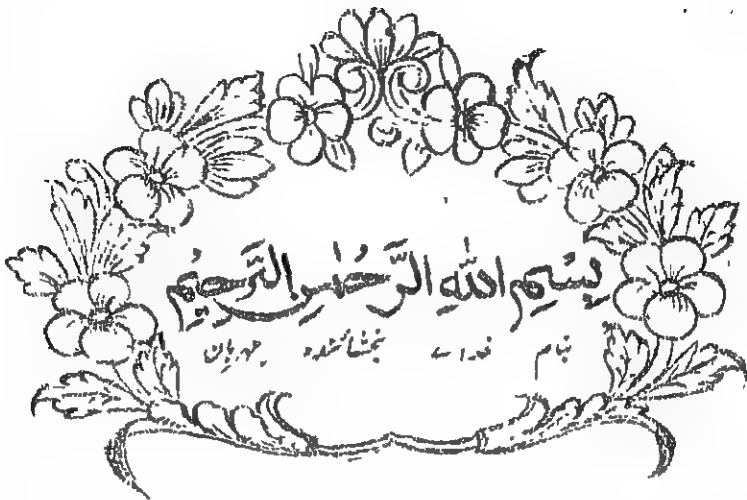 بِسْمِ اللّٰهِ الرَّحْمٰنِ الرَّحِيْمِ
بنام خدای بخشاینده مهربان